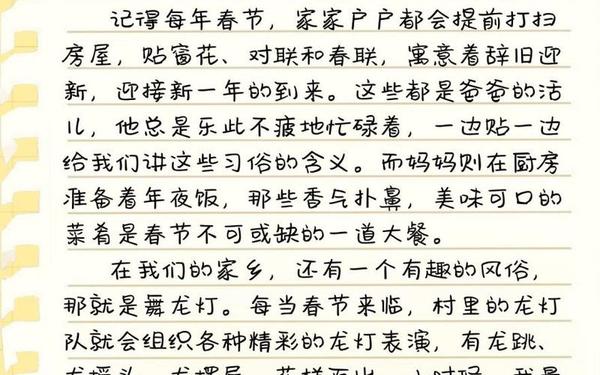 记得每年春节，家家户户都会提前打扫
房屋，贴窗花、对联和春联，寓意着辞旧迎
新，迎接新一年的到来。这些都是爸爸的活
儿，他总是乐此不疲地忙碌着，一边贴一边
给我们讲这些习俗的含义。而妈妈则在厨房
准备着年夜饭，那些香气扑鼻，美味可口的
菜肴是春节不可或缺的一道大餐。
在我们的家乡，还有一个有趣的风俗，
那就是舞龙灯。每当春节来临，村里的龙灯
队就会组织各种精彩的龙灯表演，有龙跳、